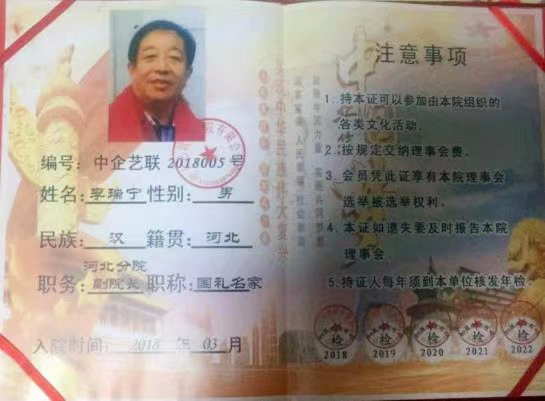 编号：中企艺联 2018005 号
姓名：李瑞宁 性别：男
民族：汉 籍贯：河北
河北分院
职务：副院长 职称：国礼名家
入院时间：2018 年 03 月
注意事项
1. 持本证可以参加由本院组织的
各类文化活动.
2. 按规定交纳理事会费.
3. 会员凭此证享有本院理事会
选举被选举权利.
4. 本证如遗失要及时报告本院
理事会.
5. 持证人每年须到本单位核发年检.
检 检 检 检 检
2018 2019 2020 2021 2022